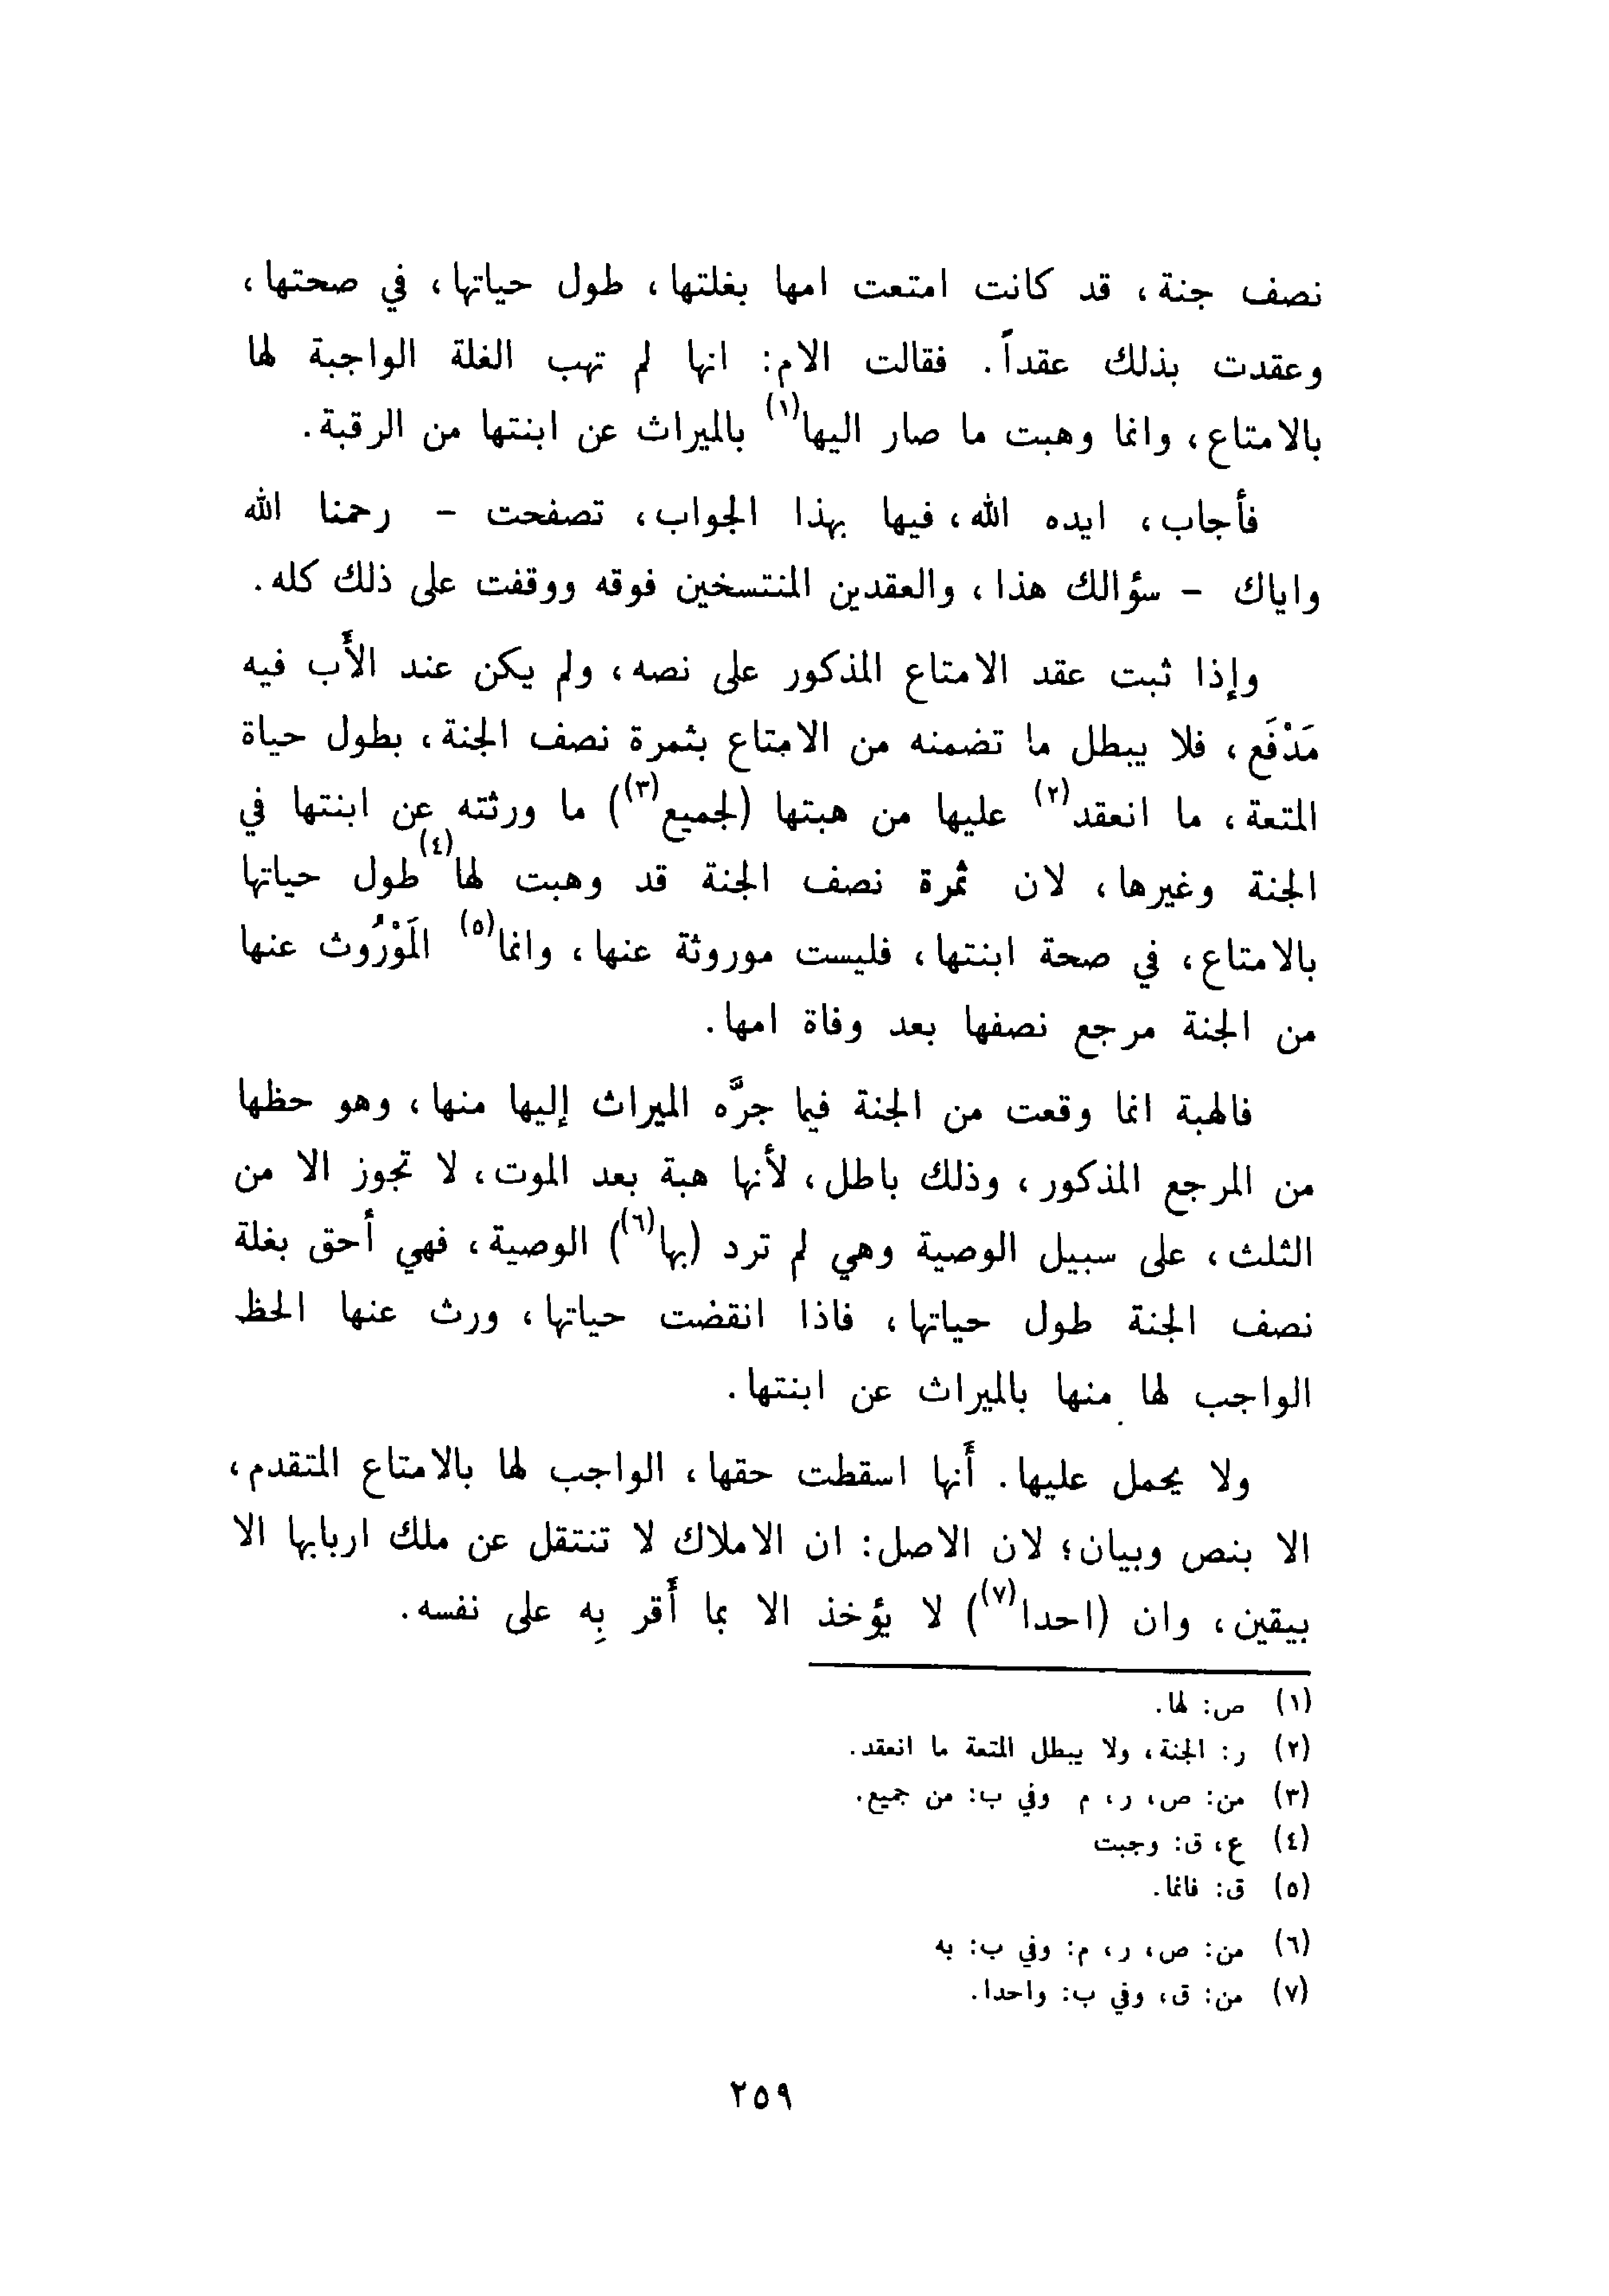 نصف جنة، قد كانت امتعت امها بغلتها، طول حياتها، في صحتها،
وعقدت بذلك عقداً. فقالت الام: انها لم تهب الغلة الواجبة لها
بالامتاع، وانما وهبت ما صار اليها(١) بالميراث عن ابنتها من الرقبة.
فأجاب، ايده الله، فيها بهذا الجواب، تصفحت - رحمنا الله
واياك - سؤالك هذا، والعقدين المنتسخين فوقه ووقفت على ذلك كله.
وإذا ثبت عقد الامتاع المذكور على نصه، ولم يكن عند الأب فيه
مَدْفَع، فلا يبطل ما تضمنه من الامتاع بثمرة نصف الجنة، بطول حياة
المتعة، ما انعقد(٢) عليها من هبتها (لجميع(٣)) ما ورثته عن ابنتها في
الجنة وغيرها، لان ثمرة نصف الجنة قد وهبت لها(٤) طول حياتها
بالامتاع، في صحة ابنتها، فليست موروثة عنها، وانما(٥) المَوْرُوث عنها
من الجنة مرجع نصفها بعد وفاة امها.
فالهبة انما وقعت من الجنة فيما جرَّه الميراث إليها منها، وهو حظها
من المرجع المذكور، وذلك باطل، لأنها هبة بعد الموت، لا تجوز الا من
الثلث، على سبيل الوصية وهي لم ترد (بها(٦)) الوصية، فهي أحق بغلة
نصف الجنة طول حياتها، فاذا انقضت حياتها، ورث عنها الحظ
الواجب لها منها بالميراث عن ابنتها.
ولا يحمل عليها. أنها اسقطت حقها، الواجب لها بالامتاع المتقدم،
الا بنص وبيان؛ لان الاصل: ان الاملاك لا تنتقل عن ملك اربابها الا
بيقين، وان (احدا(٧)) لا يؤخذ الا بما أقر بِه على نفسه.
(١) ص: لها.
(٢) ر: الجنة، ولا يبطل المتعة ما انعقد.
(٣) من: ص، ر، م وفي ب: من جميع.
(٤) ع، ق: وجبت
(٥) ق: فانما.
(٦) من: ص، ر، م: وفي ب: به
(٧) من: ق، وفي ب: واحدا.
٢٥٩